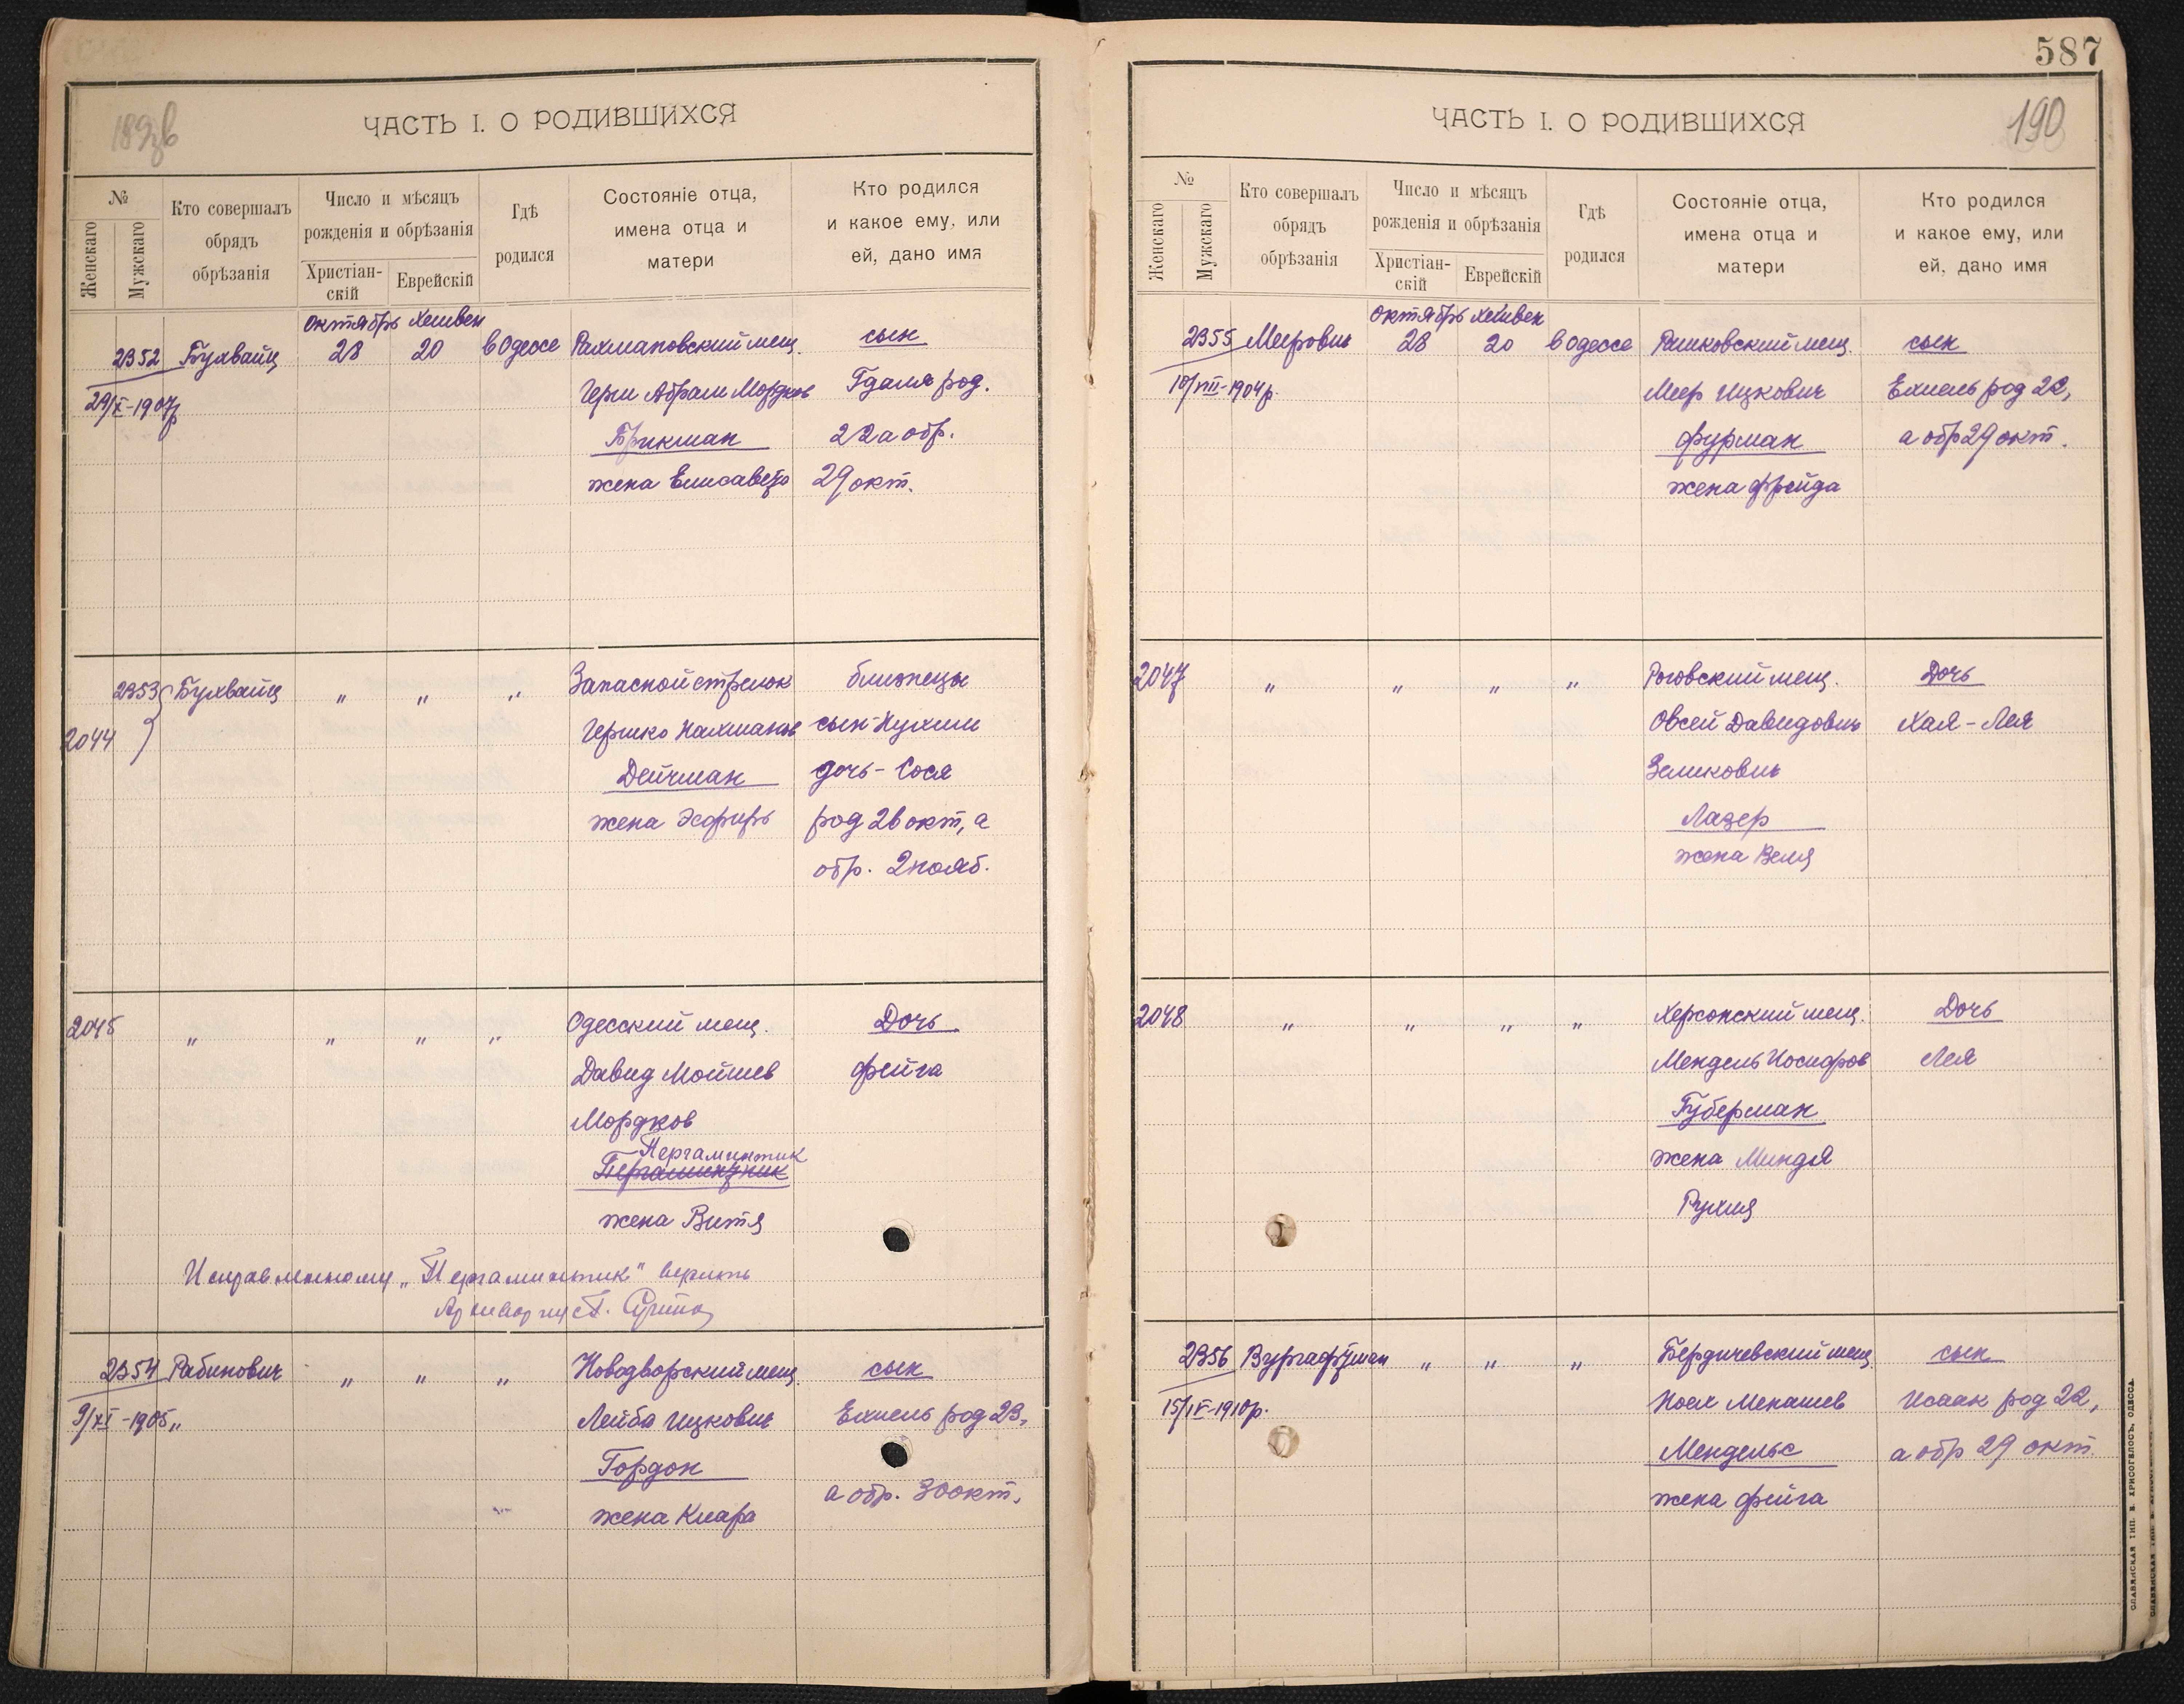 189зв
ЧАСТЬ I. О РОДИВШИХСЯ
№
Женскаго
Мужскаго
Кто совершалъ
обрядъ
обрѣзанія
Число и мѣсяцъ
рожденія и обрѣзанія
Христіан-
скій
Еврейскій
Гдѣ
родился
Состояніе отца,
имена отца и
матери
Кто родился
и какое ему, или
ей, дано имя
октябрь Хешвен
2352 Бухвайц 28 20 в Одессе Рахмановский мещ. сын
29/X-1907р Герш Абрам Мордков Гдаля род.
Брикман 22 а обр.
жена Елисавета 29 окт.
2353 Бухвайц „ „ „ Запасной стрелок близнецы
2044 Гершко Нахманов сын-Нухим
Дейчман дочь-Сося
жена Эсфирь род 26 окт, а
обр. 2 нояб.
2045 „ „ „ „ Одесский мещ. Дочь
Давид Мойшев Фейга
Мордков
Пергаминтик
Бергаминтник
жена Витя
Исправленному „Пергаминтик" верить
2354 Рабинович „ „ „ Новодворский мещ. сын
9/XI-1905„ Лейба Ицкович Ехиель род 23,
Гордон
а обр. 30 окт.
жена Клара
587
190
ЧАСТЬ I. О РОДИВШИХСЯ
№
Женскаго
Мужскаго
Кто совершалъ
обрядъ
обрѣзанія
Число и мѣсяцъ
рожденія и обрѣзанія
Христіан-
скій
Еврейскій
Гдѣ
родился
Состояніе отца,
имена отца и
матери
Кто родился
и какое ему, или
ей, дано имя
октябрь Хешвен
2355 Меерович 28 20 в Одессе Рашковский мещ. сын
10/VIII-1904р. Меер Ицкович Ехиель род 22,
Фурман а обр 29 окт.
жена Фрейда
2047 „ „ „ „ Роговский мещ. Дочь
Овсей Давидович Хая-Лея
Зеликович
Лазер
жена Веля
2048 „ „ „ „ Херсонский мещ. Дочь
Мендель Иосифов Лея
Губерман
жена Миндя
Рухля
2356 Вургафтман „ „ „ Бердичевский мещ сын
15/IV-1910р. Иоел Менашев Исаак род 22,
Мендельс а обр 29 окт.
жена Фейга
СЛАВЯНСКАЯ ТИП. М. ХРИСОГЕЛОСЪ, ОДЕССА.